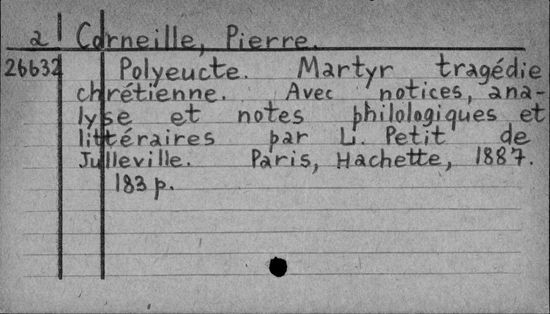 2 Corneille, Pierre.
26632 Polyeucte. Martyr tragédie
chrétienne. Avec notices, ana-
lyse et notes philologiques et
littéraires par L. Petit de
Julleville. Paris, Hachette, 1887.
183 p.